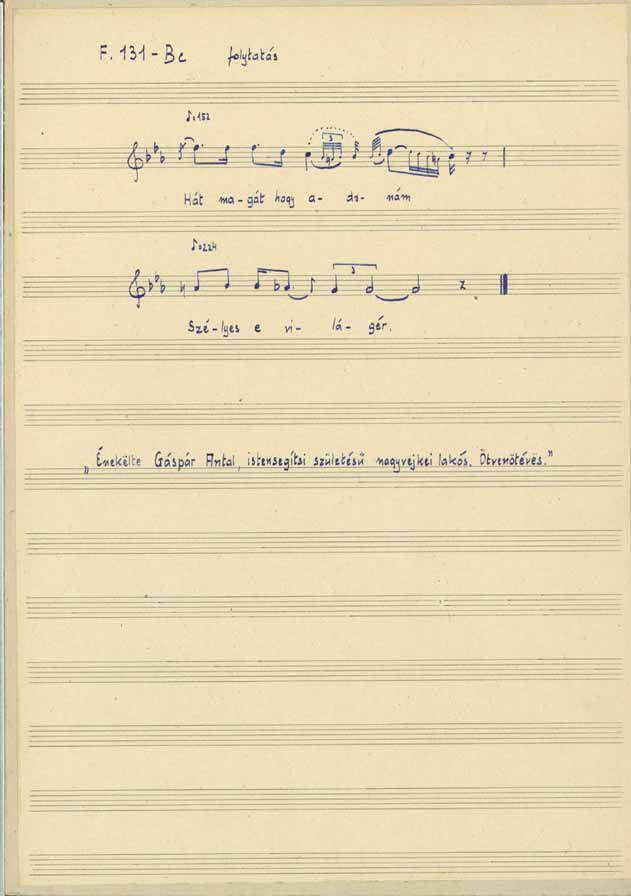 F. 131 - Bc folytatás
♪=152
3
Hát ma-gát hogy a- da- nám
♪=224
3
Szé-lyes e vi- lá- gér.
„Énekëlte Gáspár Antal, istensegítsi születésű nagyvejkei lakós. Ötvenötévës.”